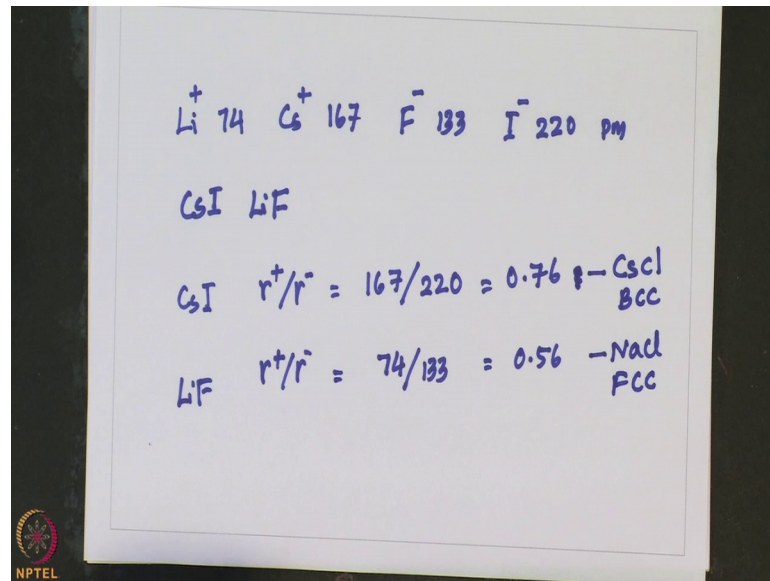 Li⁺ 74 Cs⁺ 167 F⁻ 133 I⁻ 220 pm
CsI LiF
CsI r⁺/r⁻ = 167/220 = 0.76 – CsCl
BCC
LiF r⁺/r⁻ = 74/133 = 0.56 – NaCl
FCC
NPTEL